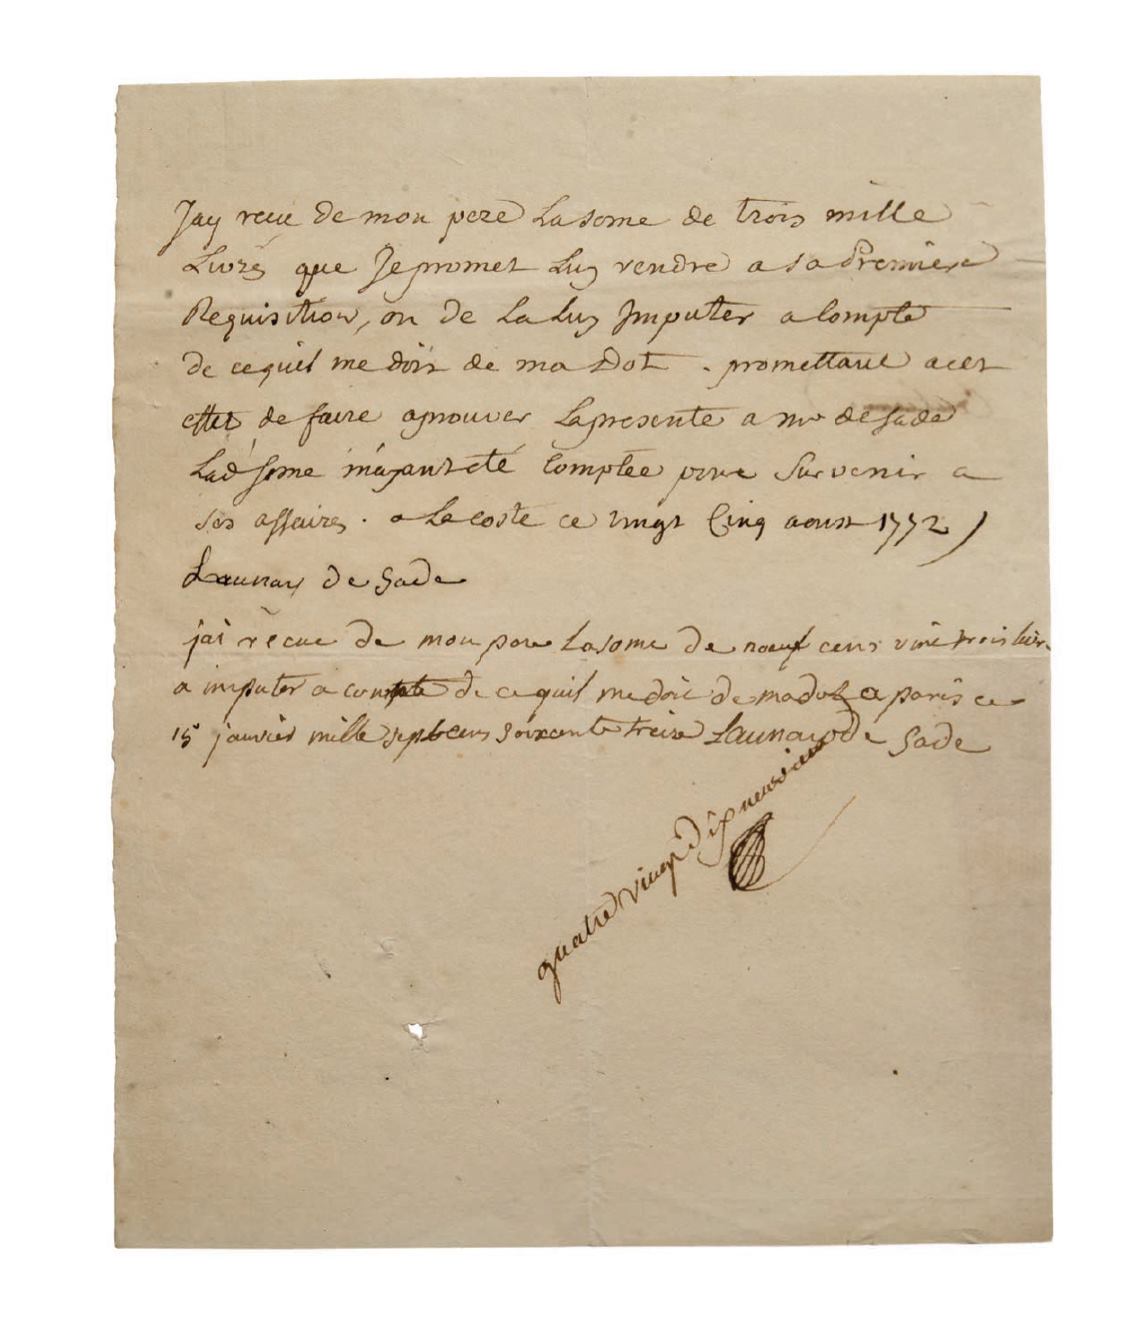 Jay recu de mon pere La some de trois mille
Livres que Je promet Luy rendre a sa Premiere
Requisition, ou de La Luy Imputer a Compte
de cequil me doit de ma Dot . promettant acet
effet de faire aprouver Lapresente a mr de Sade
Lad some m'ayant eté Comptée pour Survenir a
ses affaires . a La coste ce vingt Cinq aoust 1772
Launay de Sade
jai recue de mon pere La some de noeuf cent vint trois livr
a imputer a compte de ce quil me doit de ma dot a paris ce
15 janvier mille sept cens soixante treize Launay de Sade
quatre vingt Dix neuvieme